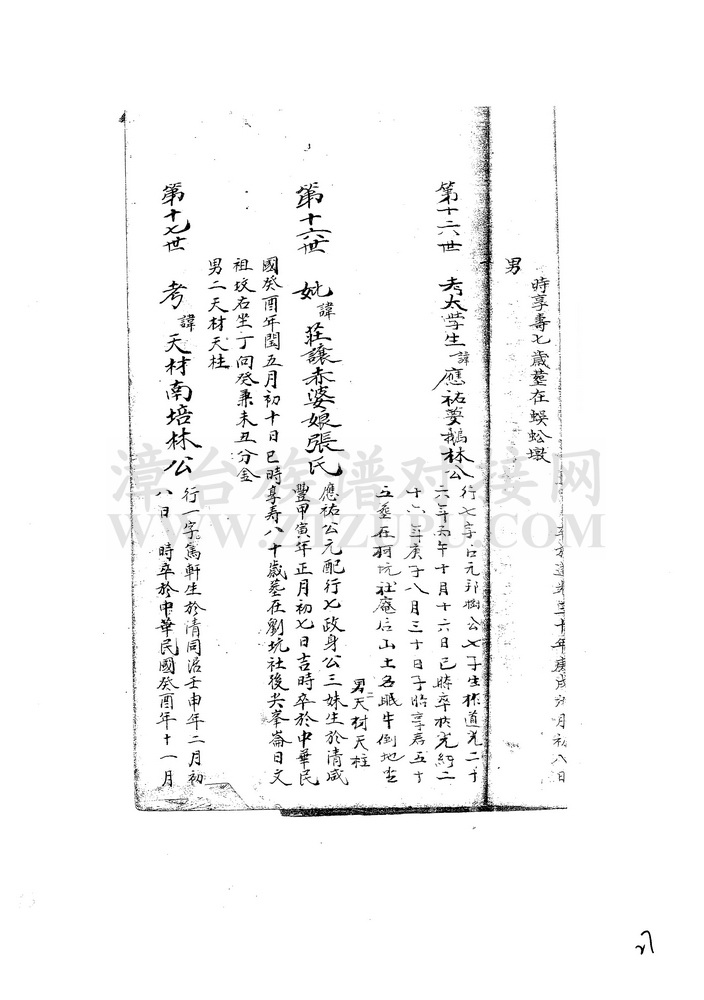 卒於道光三十年庚戌 月初八日
時享壽七歲墓在蜈蚣墩
男
第十六世 考太學生諱應祐夢鵝林公
行七字 元 公七子生於道光二十
六年丙午十月十六日巳時卒於光緒二
十六年庚子八月三十日子時享壽五十
五墓在 坑社庵后山土名眠牛倒地坐
男二天材天柱
第十六世 妣諱莊讓赤婆娘張氏
應祐公元配行七政身公三妹生於清咸
豐甲寅年正月初七日吉時卒於中華民
國癸酉年閏五月初十日巳時享寿八十歲墓在劉坑社後尖峯崙日文
祖坟右坐丁向癸兼未丑分金
男二天材天柱
第十七世 考諱天材南培林公
行一字篤軒生於清同治壬申年二月初
八日 時卒於中華民國癸酉年十一月
漳台族谱对接网
WWW.ZTZUPU.COM